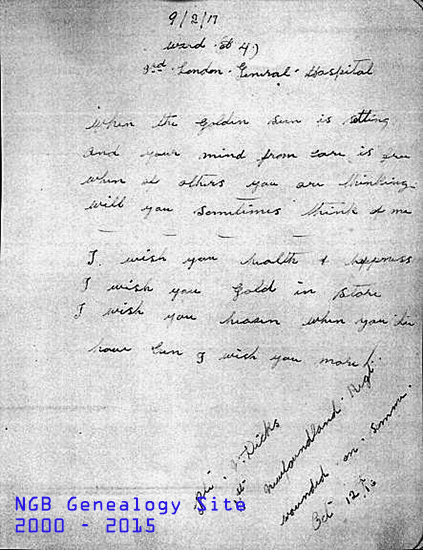 9/2/17
ward 47
3rd London General Hospital
When the golden Sun is setting
and your mind from care is free
when of others you are thinking
will you Sometimes think of me
I wish you health & happness
I wish you Gold in Store
I wish you heaven when you die
how Can I wish you more!
Pte J. Hicks
1st Newfoundland Regt
wounded on Somme
Oct 12th/16
NGB Genealogy Site
2000 - 2015